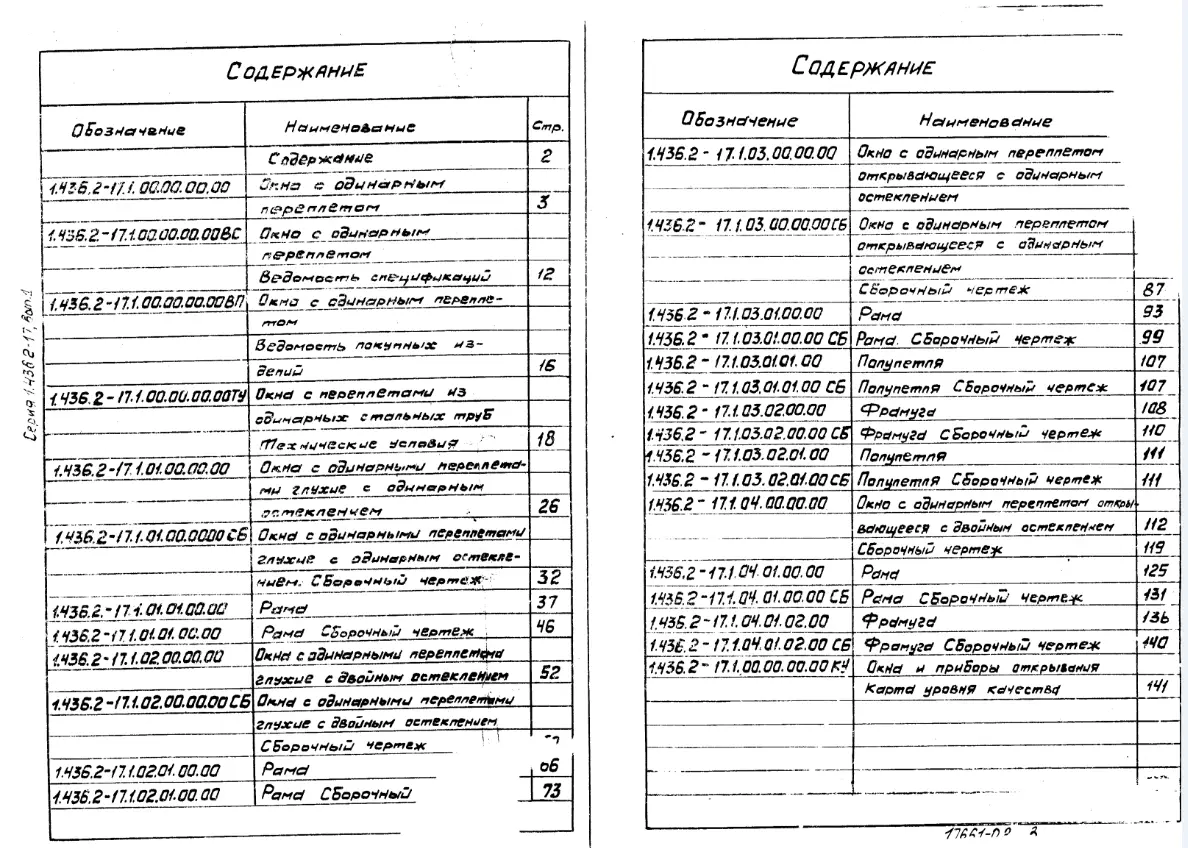 Содержание
Обозначение Наименование Стр.
Содержание 2
1.436.2-17.1.00.00.00.00 Окна с одинарным
переплетом 3
1.436.2-17.1.00.00.00.00ВС Окно с одинарным
переплетом
Ведомость спецификаций 12
1.436.2-17.1.00.00.00.00ВП Окна с одинарным перепле-
том
Ведомость покупных из-
делий 16
1.436.2-17.1.00.00.00.00ТУ Окна с переплетами из
одинарных стальных труб
Технические условия 18
1.436.2-17.1.01.00.00.00 Окна с одинарными перепlета-
ми глухие с одинарным
остеклением 26
1.436.2-17.1.01.00.0000СБ Окна с одинарными переплетами
глухие с одинарным остекле-
нием. Сборочный чертеж 32
1.436.2.-17.1.01.01.00.00 Рама 37
1.436.2-17.1.01.01.00.00 Рама Сборочный чертеж 46
1.436.2-17.1.02.00.00.00 Окна с одинарными переплетами
глухие с двойным остеклением 52
1.436.2-17.1.02.00.00.00СБ Окна с одинарными переплетами
глухие с двойным остеклением
Сборочный чертеж
1.436.2-17.1.02.01.00.00 Рама 66
1.436.2-17.1.02.01.00.00 Рама Сборочный 73
Серия 1.436.2-17, вып.1
Содержание
Обозначение Наименование
1.436.2-17.1.03.00.00.00 Окно с одинарным переплетом
открывающееся с одинарным
остеклением
1.436.2-17.1.03.00.00.00СБ Окно с одинарным переплетом
открывающееся с одинарным
остеклением
Сборочный чертеж 87
1.436.2-17.1.03.01.00.00 Рама 93
1.436.2-17.1.03.01.00.00 СБ Рама. Сборочный чертеж 99
1.436.2-17.1.03.01.01.00 Полупетля 107
1.436.2-17.1.03.01.01.00 СБ Полупетля Сборочный чертеж 107
1.436.2-17.1.03.02.00.00 Фрамуга 108
1.436.2-17.1.03.02.00.00 СБ Фрамуга Сборочный чертеж 110
1.436.2-17.1.03.02.01.00 Полупетля 111
1.436.2-17.1.03.02.01.00СБ Полупетля Сборочный чертеж 111
1.436.2-17.1.04.00.00.00 Окно с одинарным переплетом откры-
вающееся с двойным остеклением 112
Сборочный чертеж 119
1.436.2-17.1.04.01.00.00 Рама 125
1.436.2-17.1.04.01.00.00 СБ Рама Сборочный чертеж 131
1.436.2-17.1.04.01.02.00 Фрамуга 136
1.436.2-17.1.04.01.02.00 СБ Фрамуга Сборочный чертеж 140
1.436.2-17.1.00.00.00.00КУ Окна и приборы открывания
Карта уровня качества 141
17661-02 2